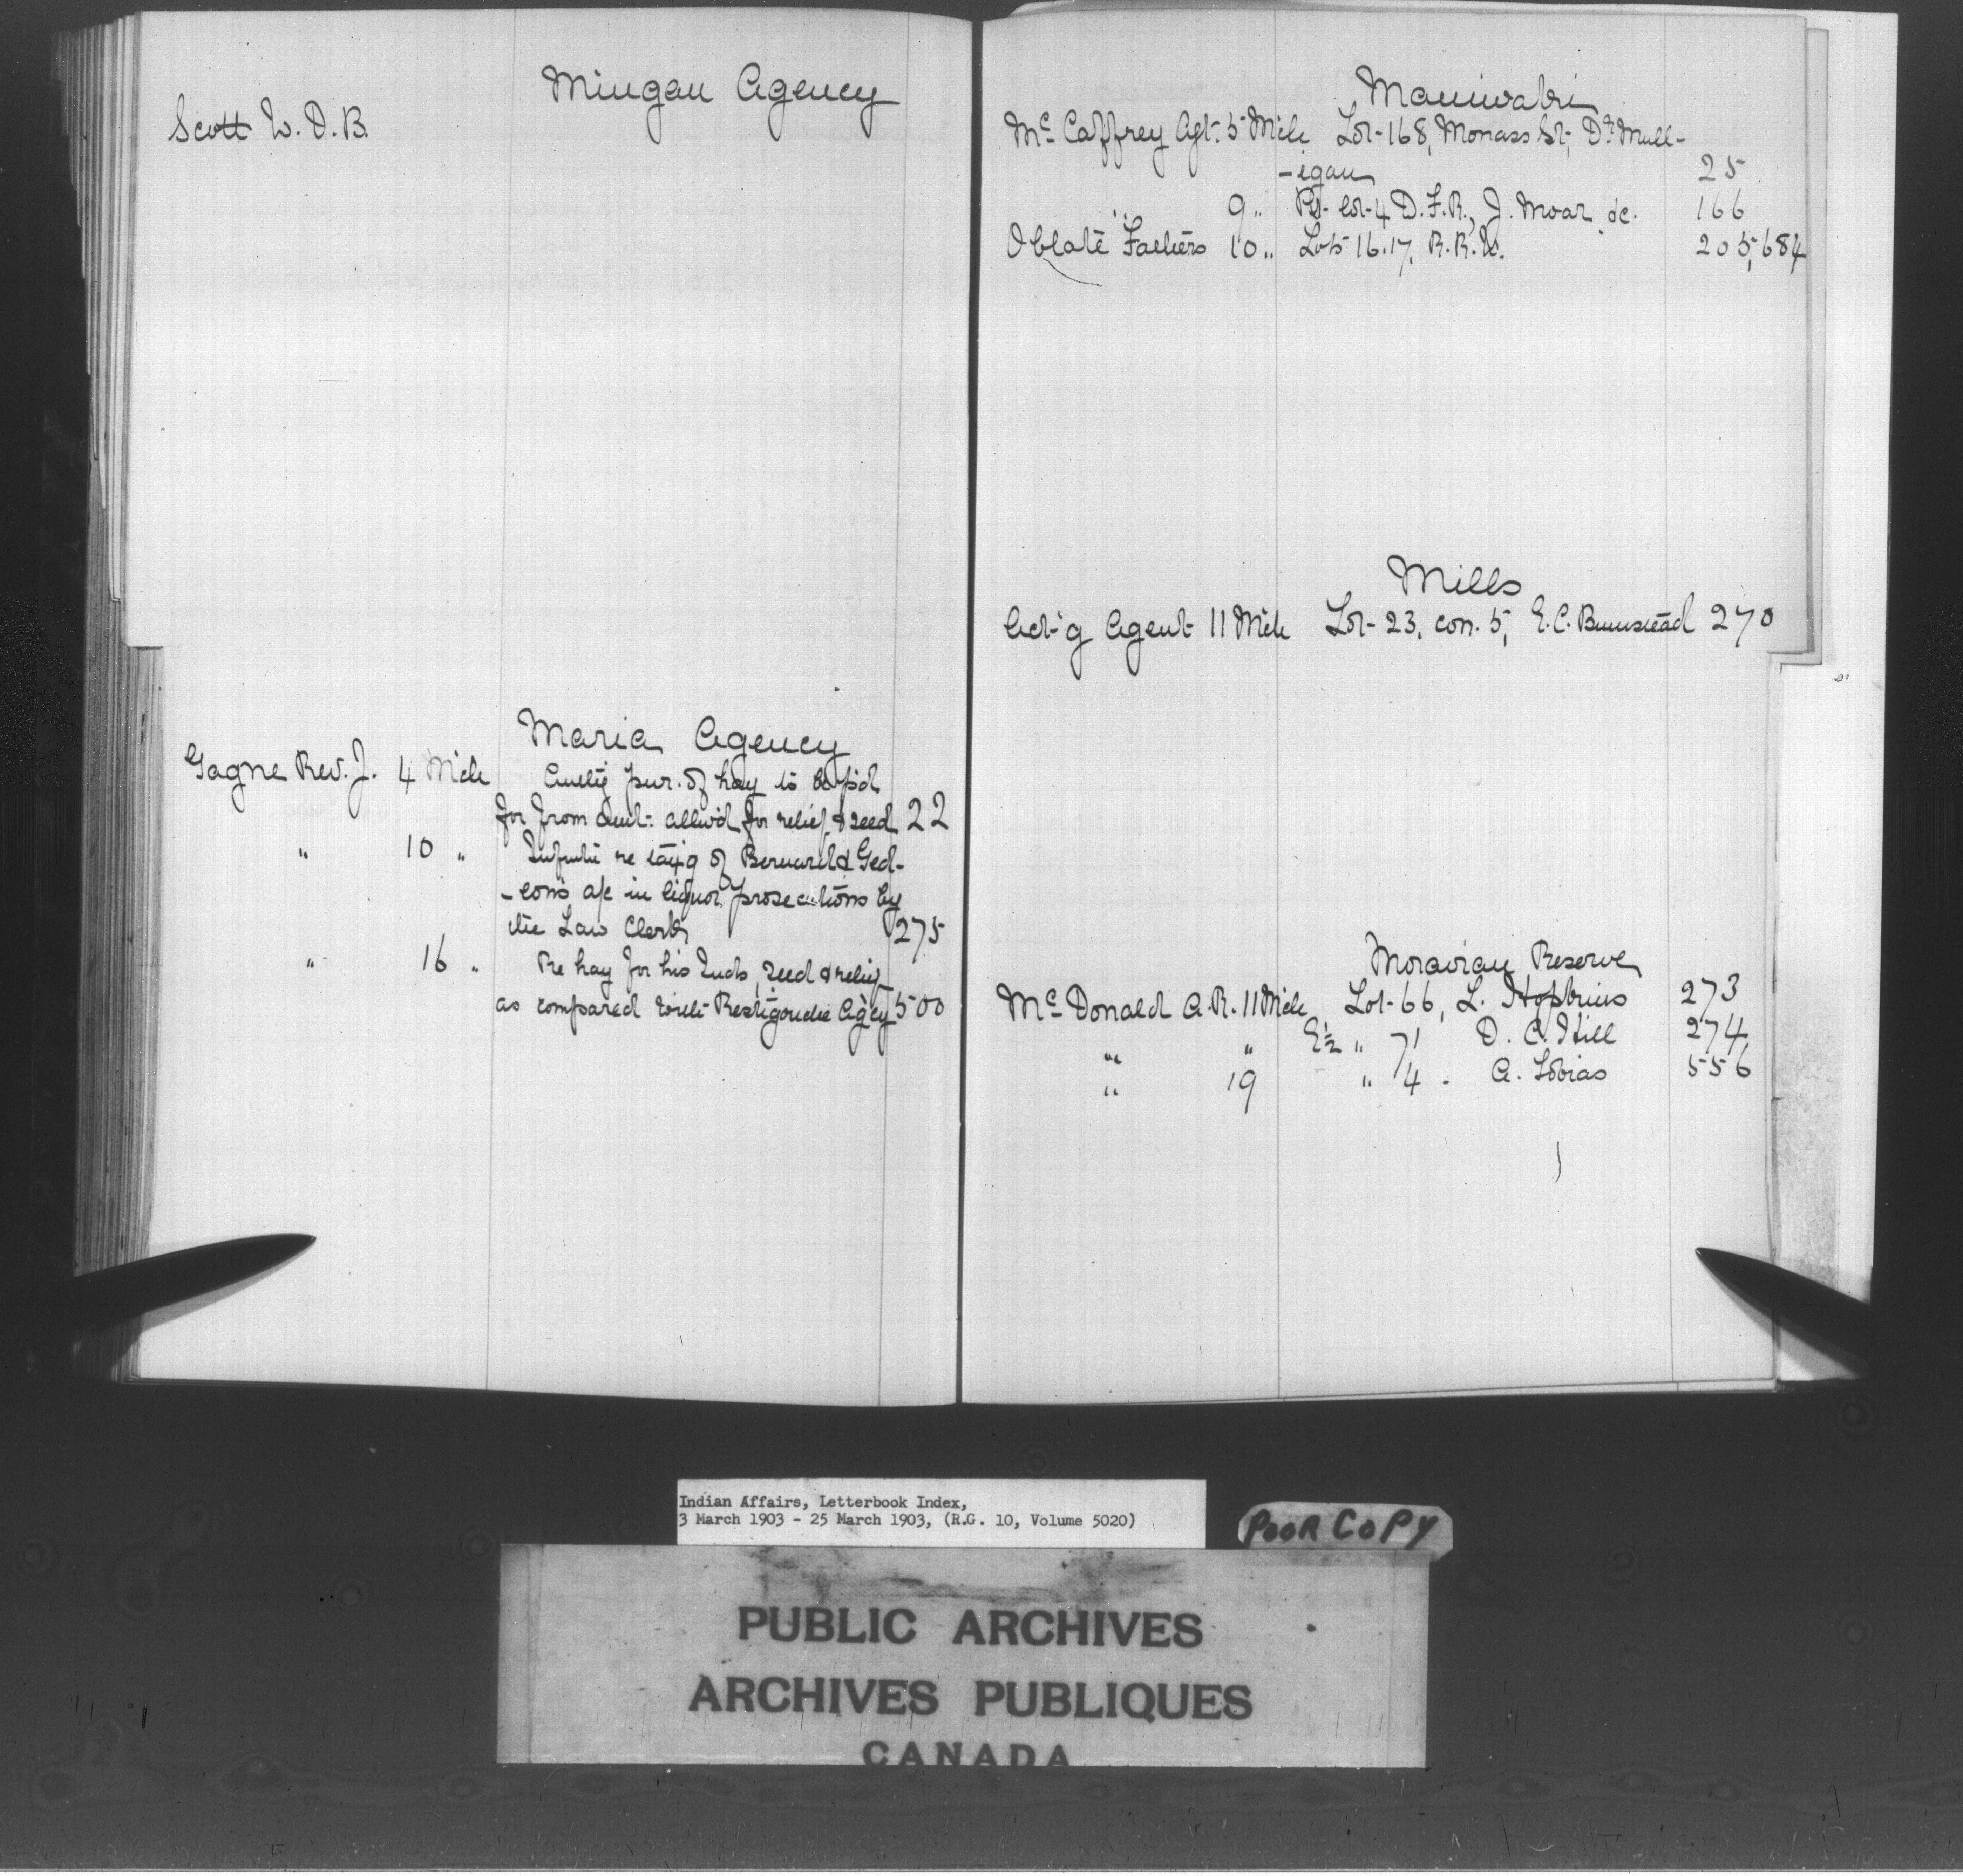 Mingan Agency
Scott W. D. B.
Maria Agency
Gagne Rev. J. 4 Mch Auth'g pur. of hay to be p'd
for from amt. allow'd for relief & seed 22
" 10 " Inf'mtn re tax'g of Bernard & Ged-
-eon's a/c in liquor prosecutions by
the Law Clerk 275
" 16 " Re hay for his Inds, seed & relief
as compared with Restigouche Ag'cy 500
Maniwaki
McCaffrey Agt. 5 Mch Lot 168, Monass St, Dr Mull-
-igan 25
" 9 " Pt. lot 4 D.F.R., J. Moar &c. 166
Oblate Fathers 10 " Lots 16.17, R.R.W. 205,684
Mills
Act'g Agent 11 Mch Lot 23, con. 5, E.C. Bumstead 270
Moravian Reserve
McDonald A.R. 11 Mch Lot 66, L. Hopkins 273
" " E½ " 71 D. C. Hill 274
" 19 " 4 - A. Tobias 556
Indian Affairs, Letterbook Index,
3 March 1903 - 25 March 1903, (R.G. 10, Volume 5020)
POOR COPY
PUBLIC ARCHIVES
ARCHIVES PUBLIQUES
CANADA